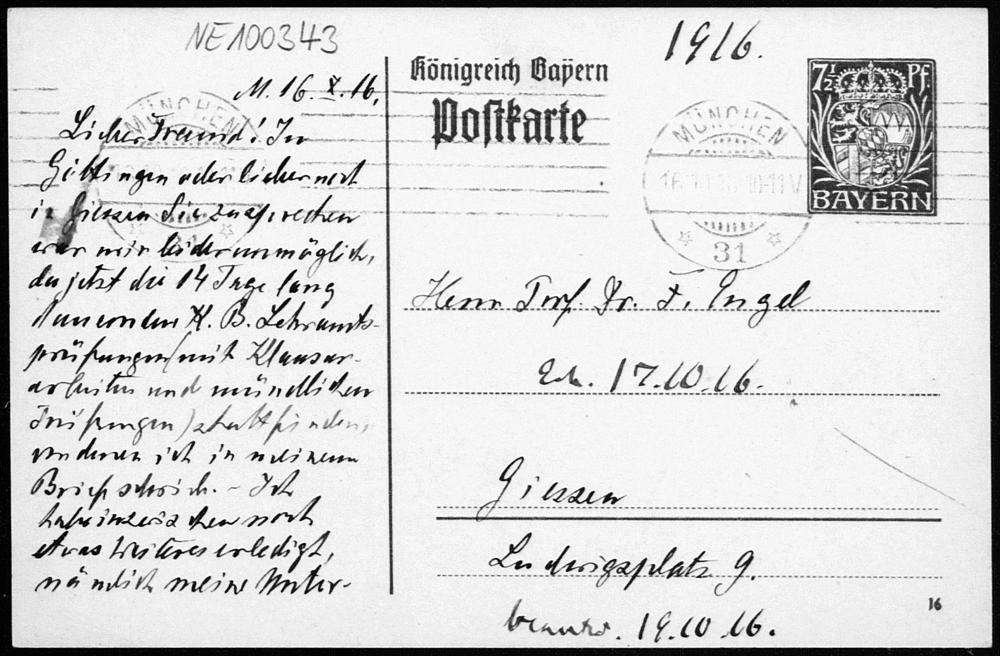 NE100343
1916.
M. 16. X. 16.
Lieber Freund! In
Göttingen oder lieber noch
in Giessen Sie zu sprechen
war mir leider unmöglich,
da jetzt die 14 Tage lang
dauernden K. B. Lehramts-
prüfungen (mit Klausur-
arbeiten und mündlichen
Prüfungen) stattfinden,
von denen ich in meinem
Brief schrieb. – Ich
habe inzwischen noch
etwas Weiteres erledigt,
nämlich meine Unter-
Königreich Bayern
Postkarte
MÜNCHEN
31
MÜNCHEN
16.10.16 10-11V
31
7½ Pf
BAYERN
Herrn Prof. Dr. F. Engel
Erh. 17.10.16.
Giessen
Ludwigsplatz 9.
beantw. 19.10.16.
16